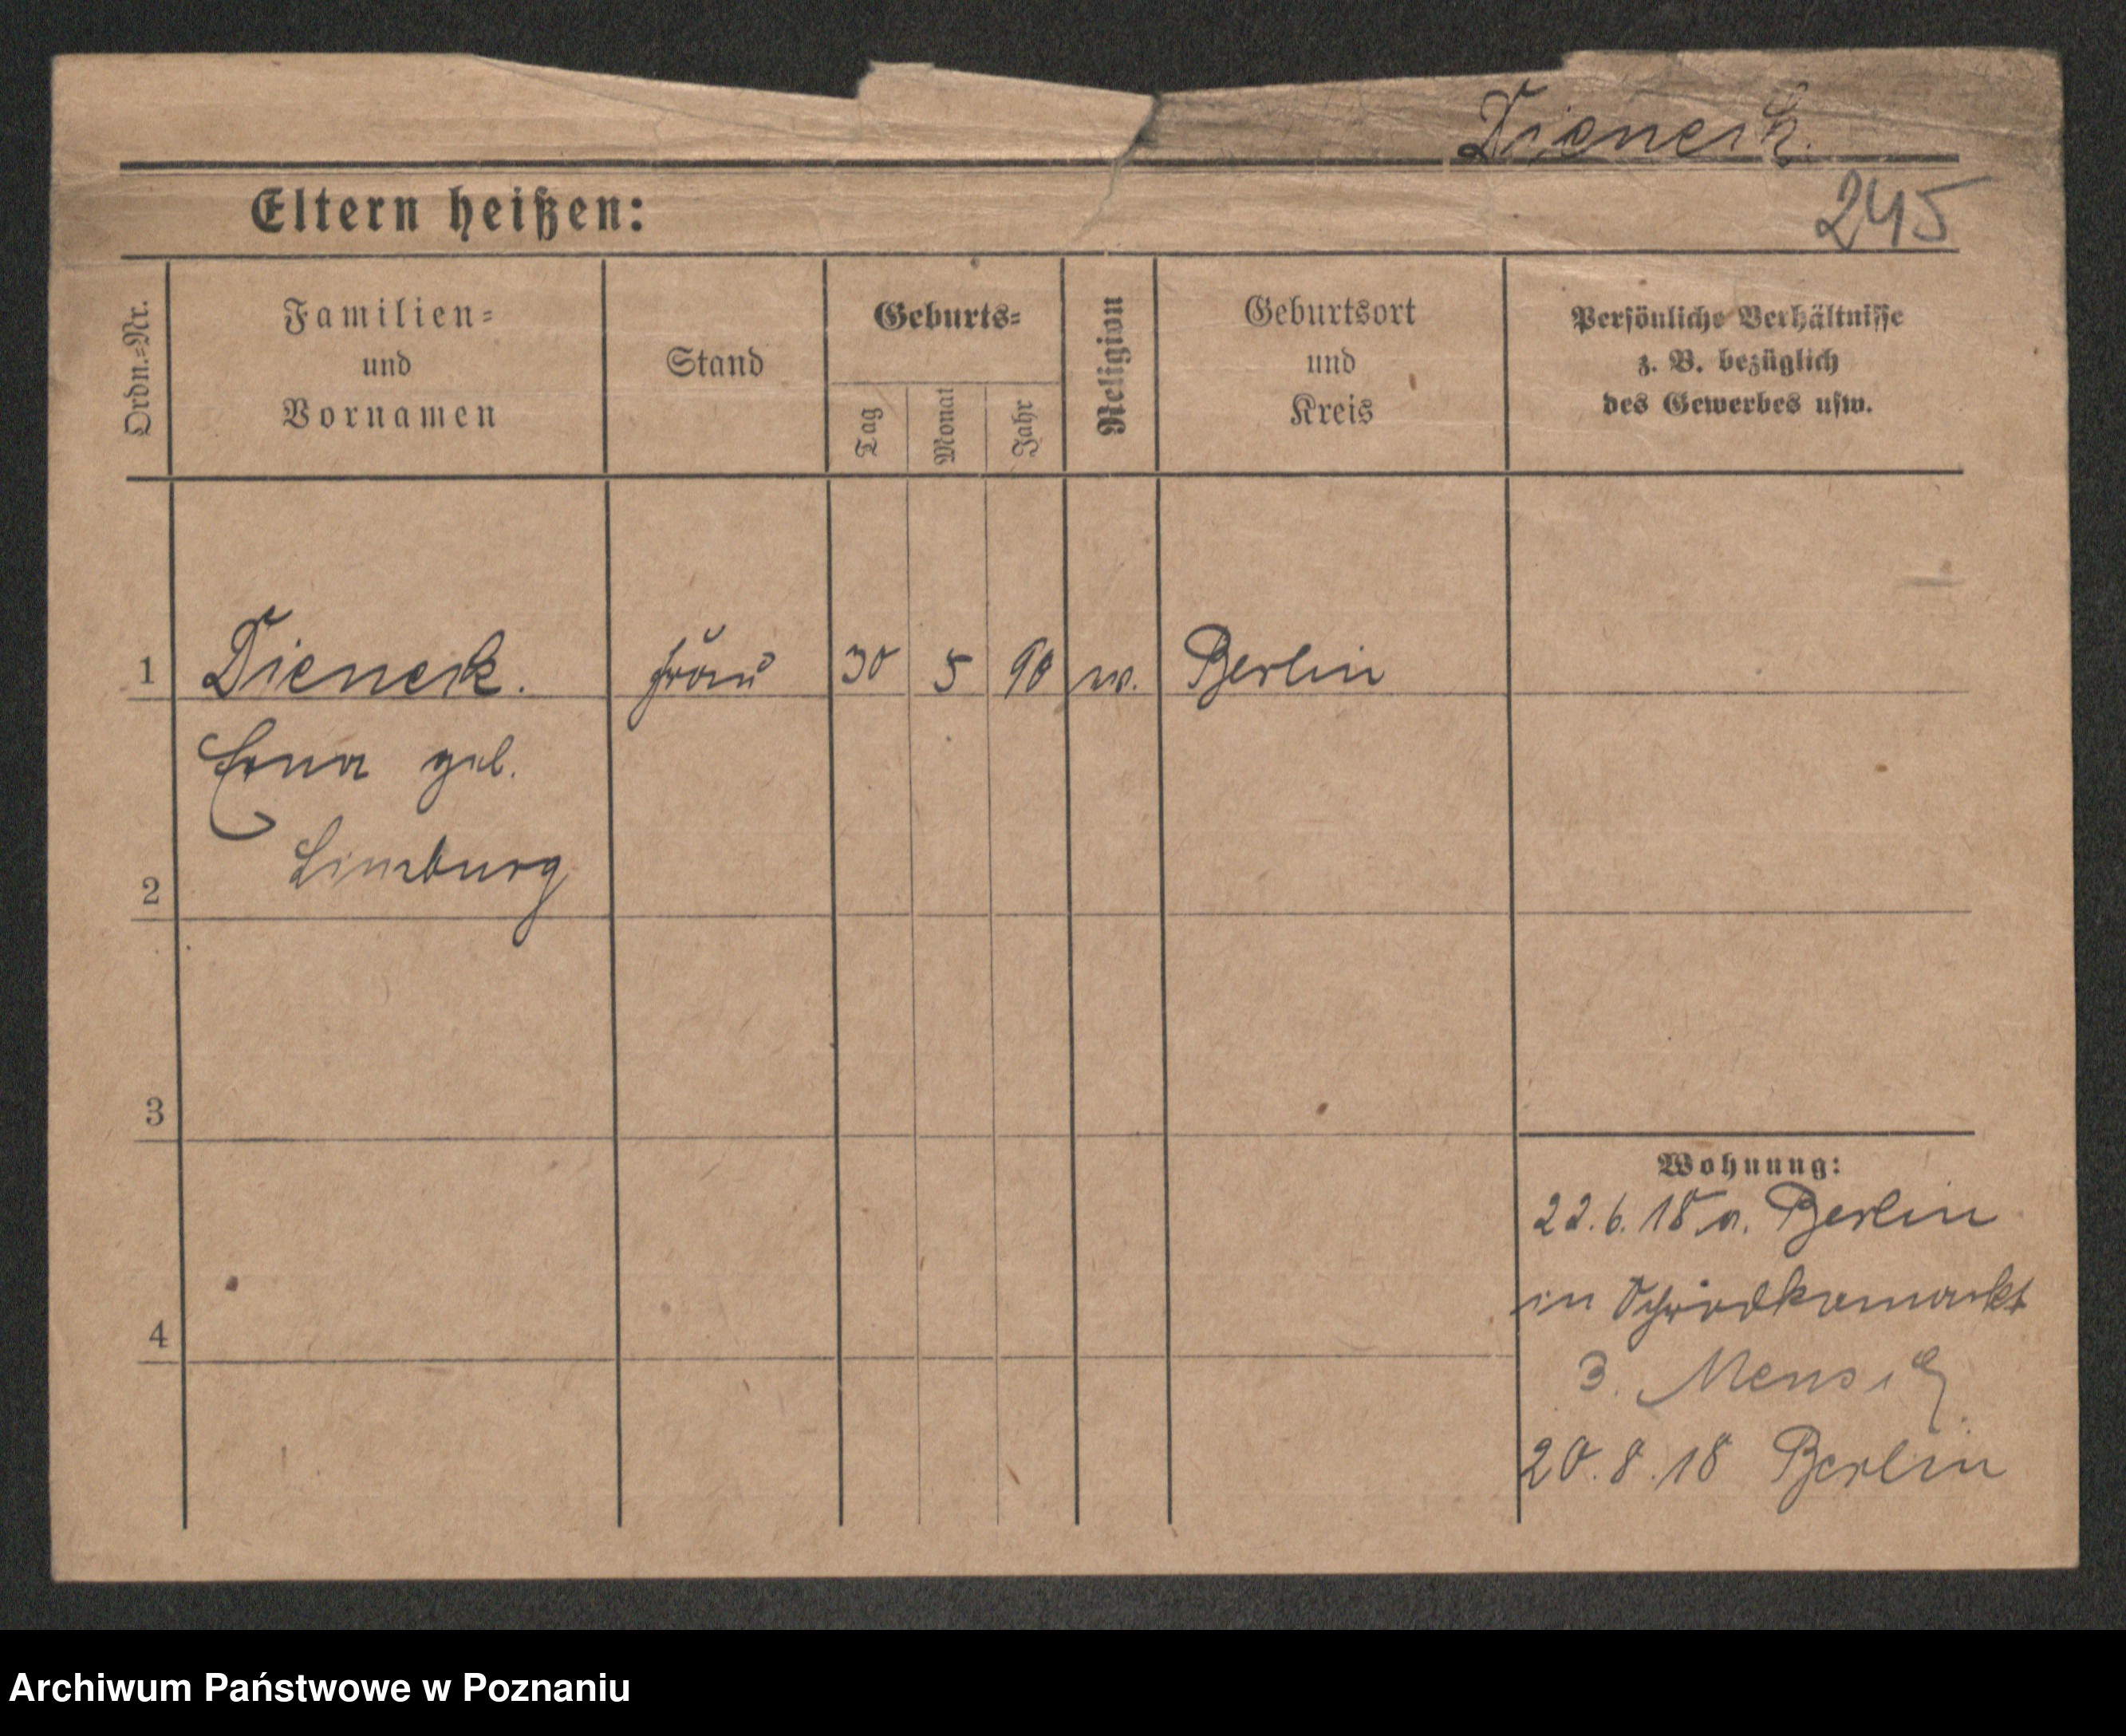 Dieneck.
Eltern heißen:
245
Ordn.=Nr.
Familien=
und
Vornamen
Stand
Geburts=
Tag
Monat
Jahr
Religion
Geburtsort
und
Kreis
Persönliche Verhältnisse
z. B. bezüglich
des Gewerbes usw.
1 Dieneck. 30 5 90 Berlin
Erna geb.
Limburg
2
3
4
Wohnung:
22.6.18 a. Berlin
in
3.
20.8.18 Berlin
Archiwum Państwowe w Poznaniu